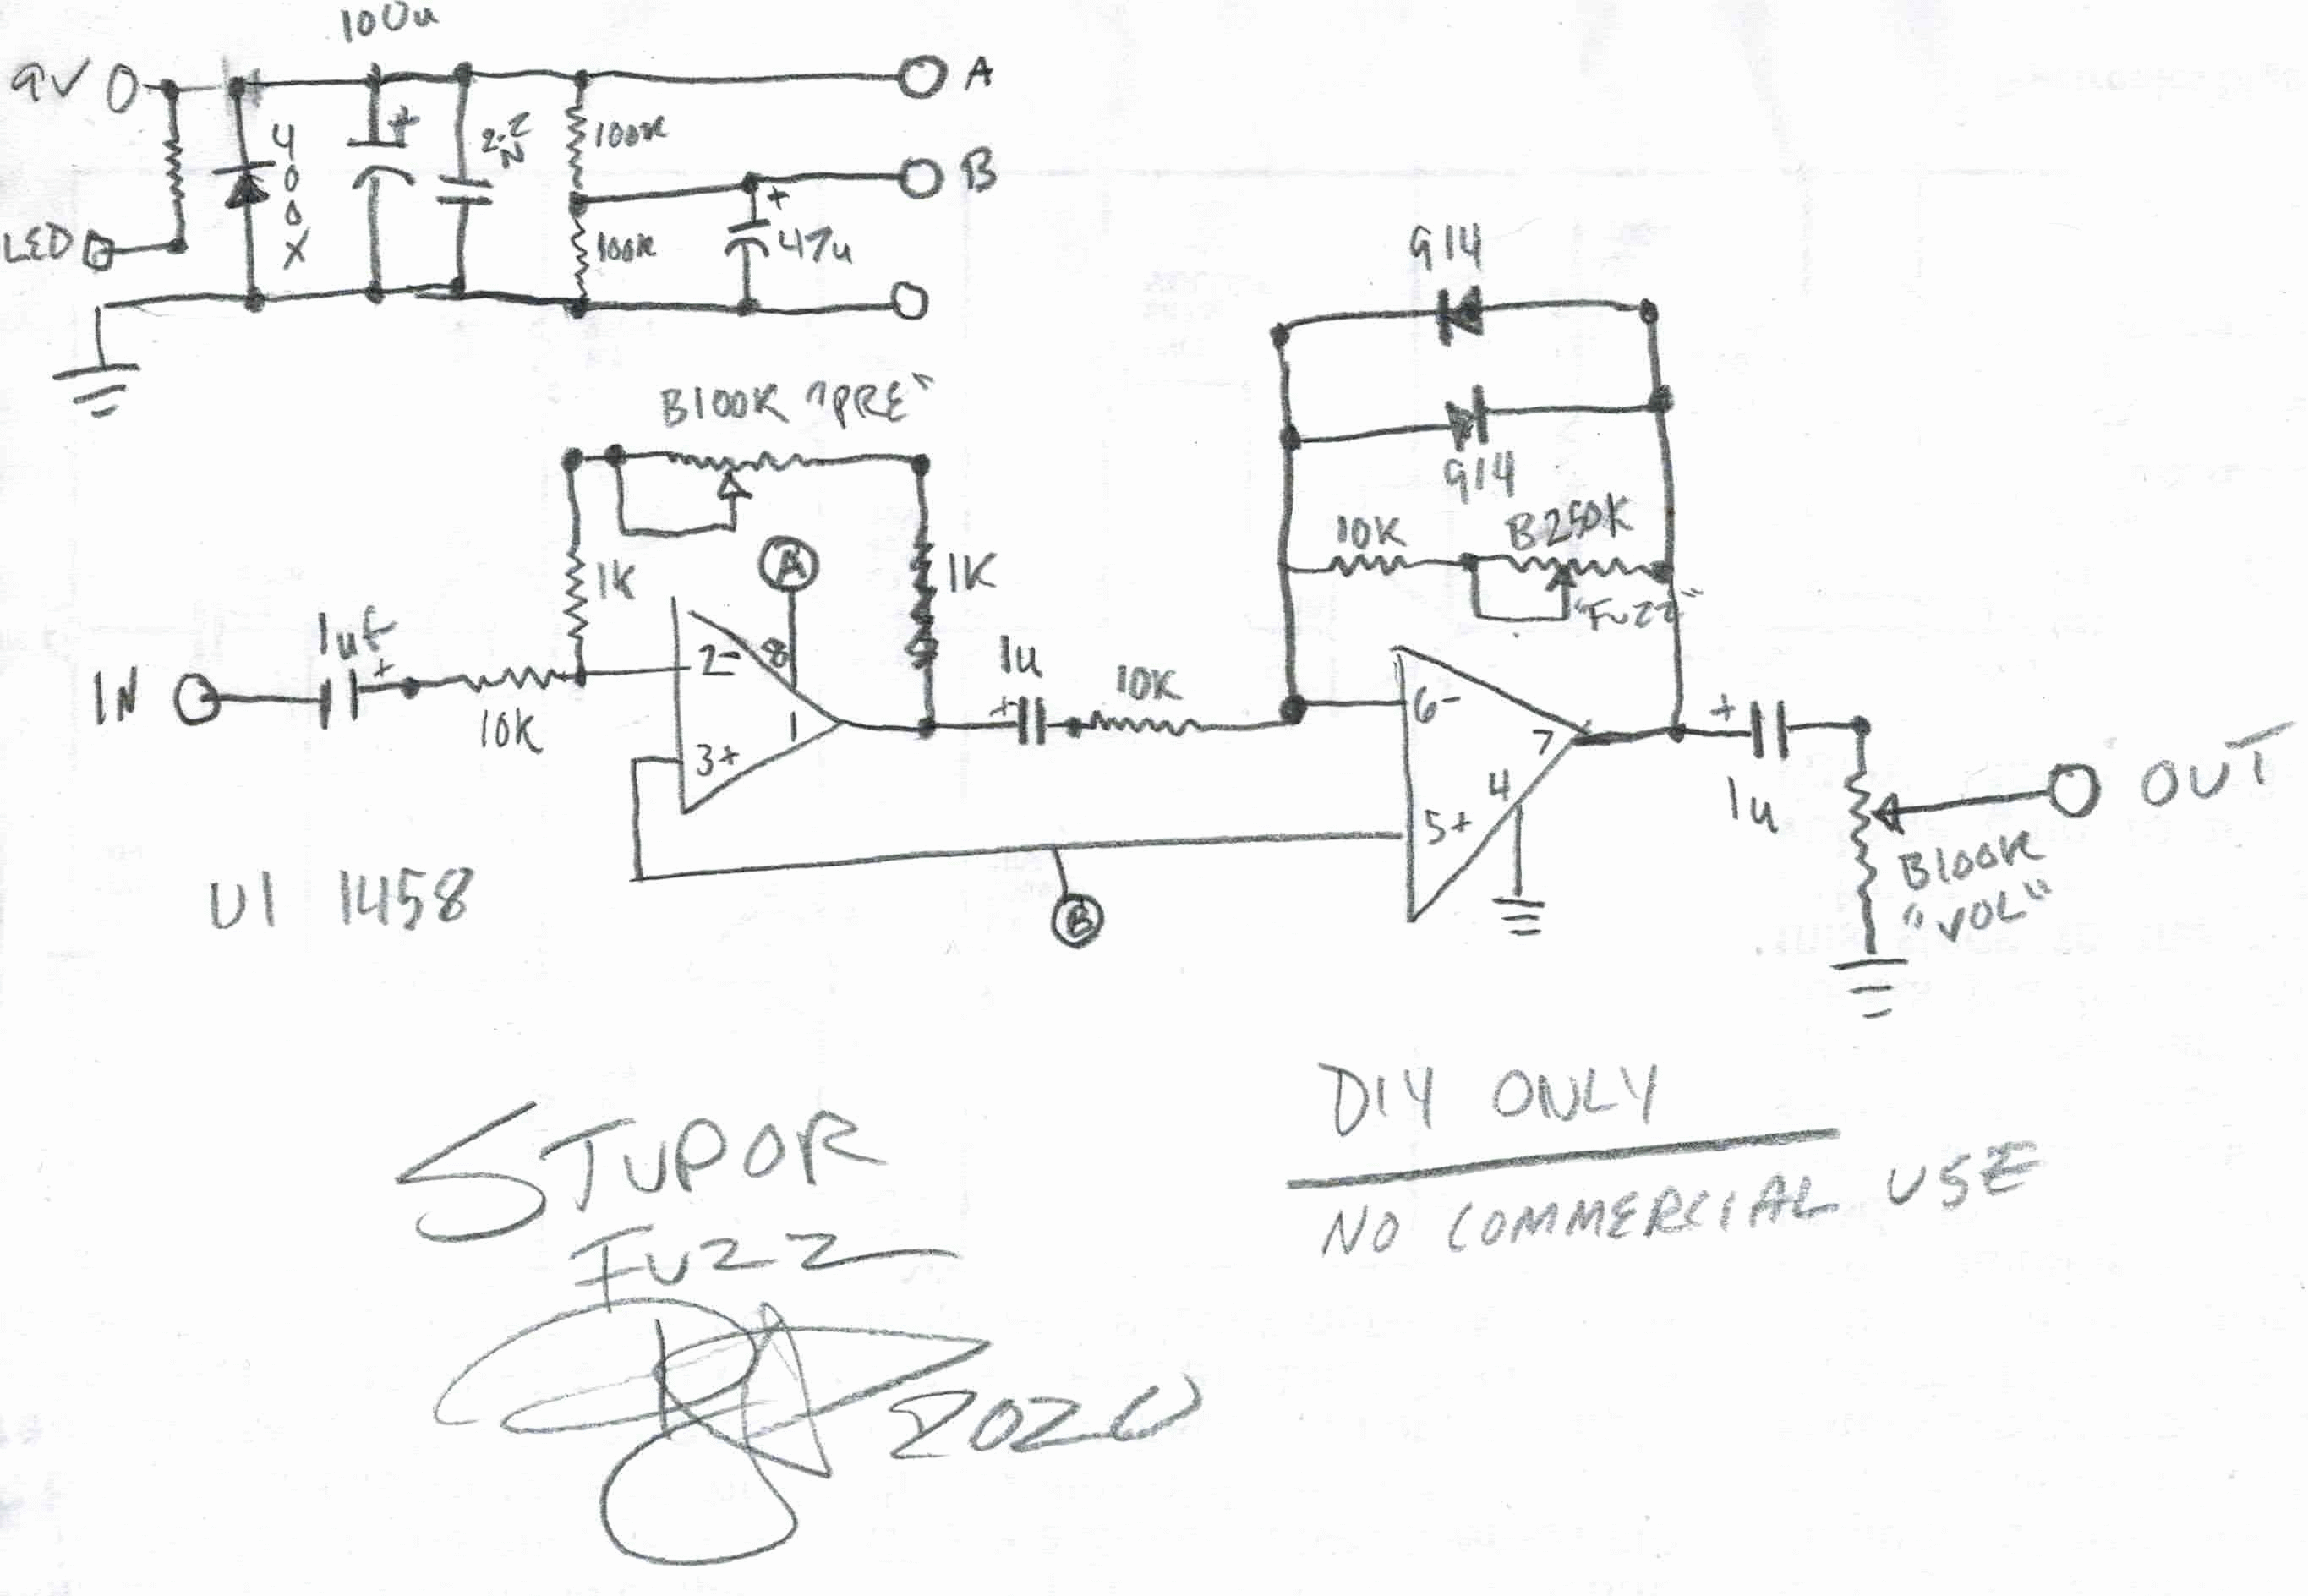 100u
9V
A
+
4
0
0
X
2.2
N
100K
B
+
LED
100K
47u
914
B100K "PRE"
914
10K
B250K
A
1K
1K
"FUZZ"
1uf
+
1u
10K
2-
8
IN
10K
1
+
6-
+
3+
7
OUT
4
1u
5+
B100K
"VOL"
U1 1458
B
DIY ONLY
STUPOR
NO COMMERCIAL USE
FUZZ
2020